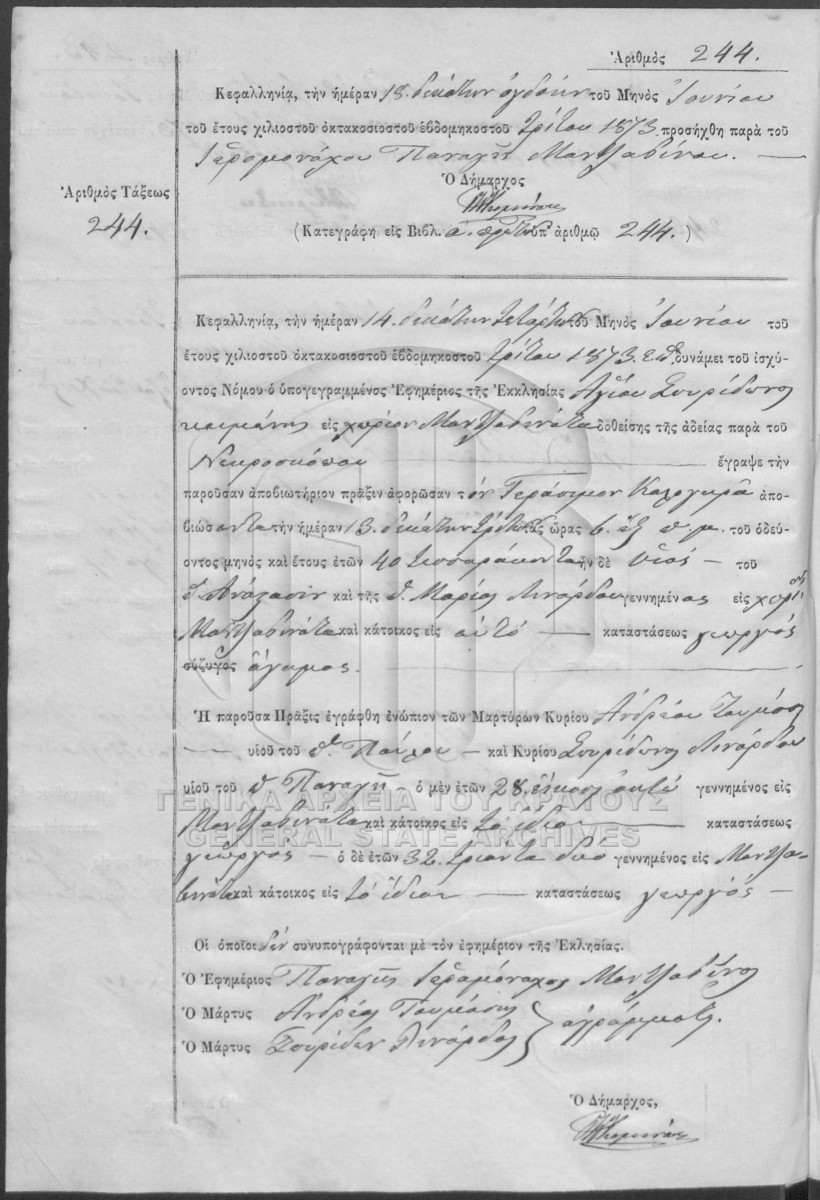 Ἀριθμὸς 244.
Κεφαλληνίᾳ, τὴν ἡμέραν 18. δεκάτην ὀγδόην τοῦ Μηνὸς Ἰουνίου
τοῦ ἔτους χιλιοστοῦ ὀκτακοσιοστοῦ ἑβδομηκοστοῦ τρίτου 1873. προσήχθη παρὰ τοῦ
Ἱερομονάχου Παναγῆ Μαντζαβίνου.
Ὁ Δήμαρχος
Ἀριθμὸς Τάξεως
244.
(Κατεγράφη εἰς Βιβλ. α. πρῶτον ὑπ' ἀριθμῷ 244.)
Κεφαλληνίᾳ, τὴν ἡμέραν 14. δεκάτην τετάρτην τοῦ Μηνὸς Ἰουνίου τοῦ
ἔτους χιλιοστοῦ ὀκτακοσιοστοῦ ἑβδομηκοστοῦ τρίτου 1873. δυνάμει τοῦ ἰσχύ-
οντος Νόμου ὁ ὑπογεγραμμένος Ἐφημέριος τῆς Ἐκκλησίας Ἁγίου Σπυρίδωνος
κειμένης εἰς χωρίον Μαντζαβινάτα δοθείσης τῆς ἀδείας παρὰ τοῦ
Νεκροσκόπου ἔγραψε τὴν
παροῦσαν ἀποβιωτήριον πρᾶξιν ἀφορῶσαν τὸν Γεράσιμον Καλογηρᾶ ἀπο-
βιώσαντα τὴν ἡμέραν 13. δεκάτην τρίτην τὰς ὥρας 6. ἓξ π. μ. τοῦ ὁδεύ-
οντος μηνὸς καὶ ἔτους ἐτῶν 40 τεσσαράκοντα ἦν δὲ υἱὸς τοῦ
καὶ τῆς π. Μαρίας Λινάρδου γεννημένος εἰς χωρίον
Μαντζαβινάτα καὶ κάτοικος εἰς αὐτό καταστάσεως γεωργός
σύζυγος ἄγαμος.
Ἡ παροῦσα Πρᾶξις ἐγράφθη ἐνώπιον τῶν Μαρτύρων Κυρίου Ἀνδρέου Τουμάση
υἱοῦ τοῦ π. Παύλου καὶ Κυρίου Σπυρίδωνος Λινάρδου
υἱοῦ τοῦ π Παναγῆ ὁ μὲν ἐτῶν 28. εἴκοσι ὀκτώ γεννημένος εἰς
ΓΕΝΙΚΑ ΑΡΧΕΙΑ ΤΟΥ ΚΡΑΤΟΥΣ
Μαντζαβινάτα καὶ κάτοικος εἰς τὸ ἴδιον καταστάσεως
GENERAL STATE ARCHIVES
γεωργός ὁ δὲ ἐτῶν 32. τριάντα δύο γεννημένος εἰς Μαντζα-
βινάτα καὶ κάτοικος εἰς τὸ ἴδιον καταστάσεως γεωργός
Οἱ ὁποῖοι δέν συνυπογράφονται μὲ τὸν ἐφημέριον τῆς Ἐκλησίας.
Ὁ Ἐφημέριος Παναγῆς Ἱερομόναχος Μαντζαβίνος
Ὁ Μάρτυς Ἀνδρέας Τουμάσης
Ὁ Μάρτυς Σπυρίδων Λινάρδος } ἀγράμματοι.
Ὁ Δήμαρχος,